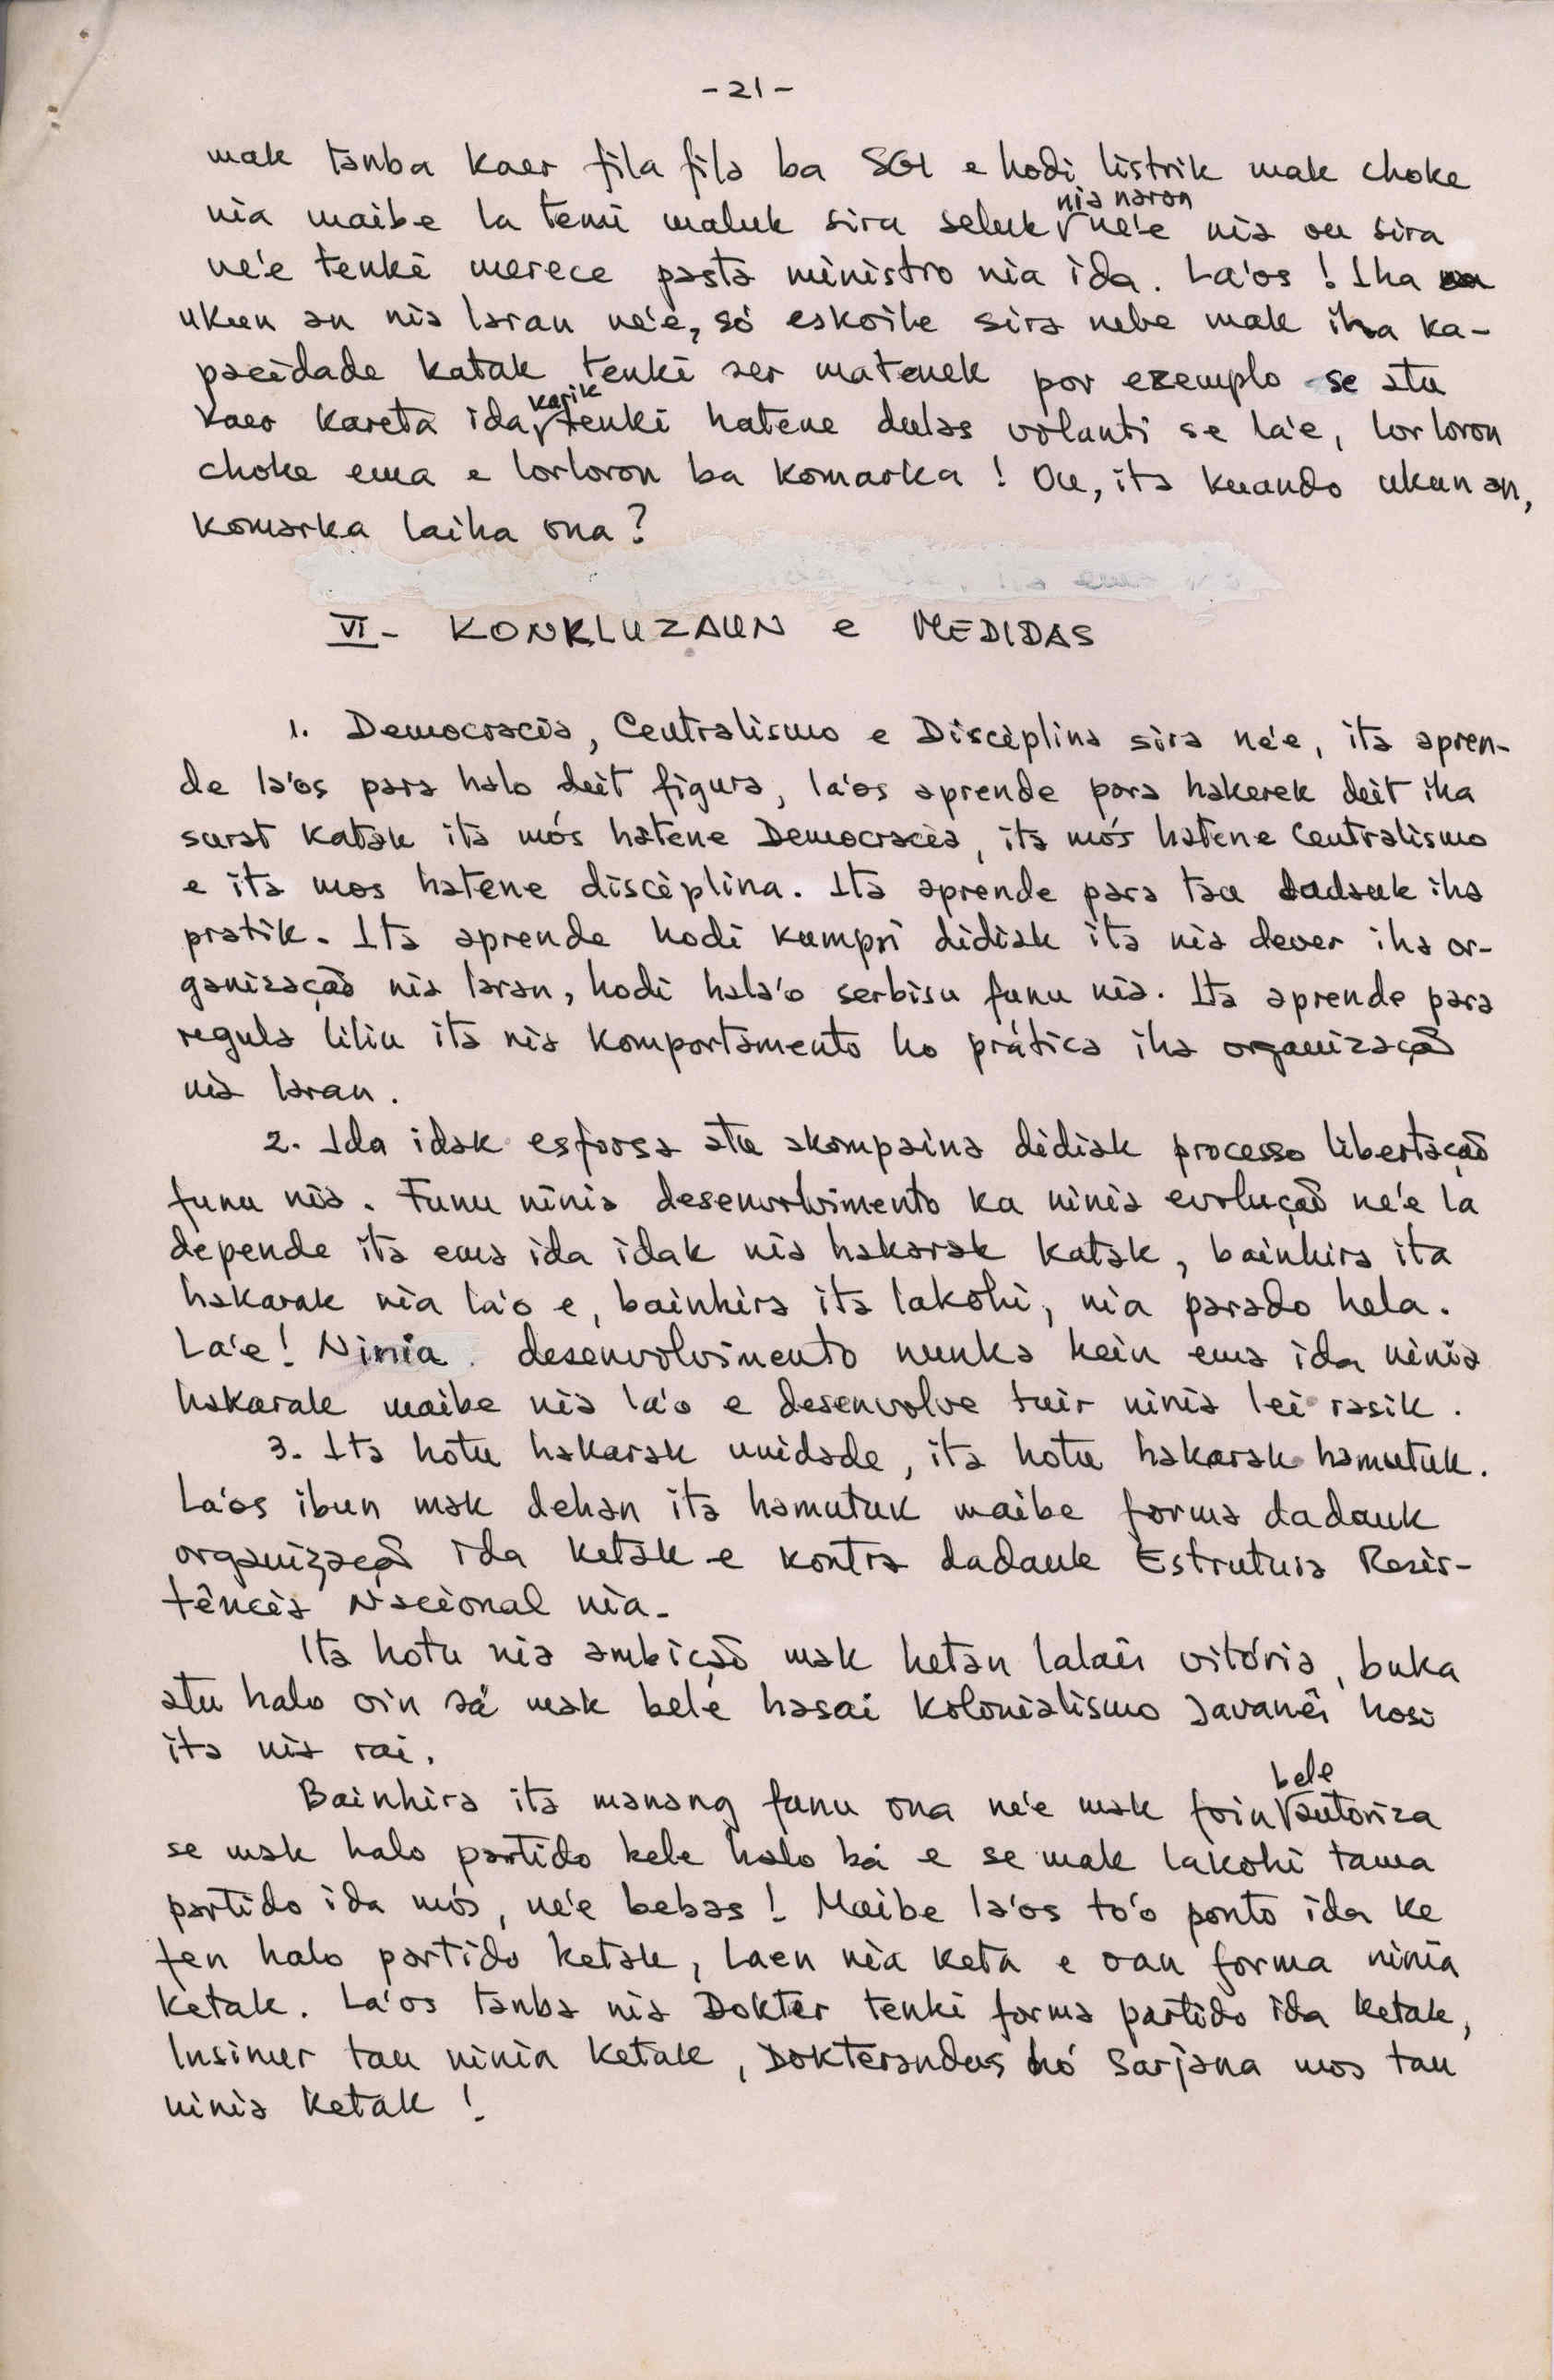 - 21 -
mak tanba kaer fila fila ba SGI e hodi listrik mak choke
nia naran
nia maibe la temi maluk sira seluk ne'e nia ou sira
ne'e tenki merece pasta ministro nia ida. La'os ! Iha
ukun an nia laran ne'e, só eskoihe sira nebe mak iha ka-
pacidade katak tenki ser matenek por ezemplo se atu
karik
kaer kareta ida, tenki hatene dulas volanti se la'e, lorloron
choke ema e lorloron ba komarka ! Ou, ita kuando ukun an,
komarka laiha ona ?
VI - KONKLUZAUN e MEDIDAS
1. Democracia, Centralismo e Disciplina sira ne'e, ita apren-
de la'os para halo deit figura, la'os aprende para hakerek deit iha
surat katak ita mós hatene Democracia, ita mós hatene Centralismo
e ita mos hatene disciplina. Ita aprende para tau dadauk iha
pratik. Ita aprende hodi kumpri didiak ita nia dever iha or-
ganização nia laran, hodi hala'o serbisu funu nia. Ita aprende para
regula liliu ita nia komportamento ho prática iha organização
nia laran.
2. Ida idak esforsa atu akompaina didiak processo libertação
funu nia. Funu ninia desenvolvimento ka ninia evolução ne'e la
depende ita ema ida idak nia hakarak katak, bainhira ita
hakarak nia la'o e, bainhira ita lakohi, nia parado hela.
La'e ! Ninia desenvolvimento nunka hein ema ida ninia
hakarak maibe nia la'o e desenvolve tuir ninia lei rasik.
3. Ita hotu hakarak unidade, ita hotu hakarak hamutuk.
La'os ibun mak dehan ita hamutuk maibe forma dadauk
organização ida ketak e kontra dadauk Estrutura Resis-
tência Nacional nia.
Ita hotu nia ambição mak hetan lalais vitória, buka
atu halo oin sá mak belé hasai kolonialismo Javanês hosi
ita nia rai.
bele
Bainhira ita manang funu ona ne'e mak foin autoriza
se mak halo partido bele halo bá e se mak lakohi tama
partido ida mós, ne'e bebas ! Maibe la'os to'o ponto ida ke
fen halo partido ketak, laen nia keta e oan forma ninia
ketak. La'os tanba nia Dokter tenki forma partido ida ketak,
Insinur tau ninia ketak, Dokterandus hó Sarjana mos tau
ninia ketak !